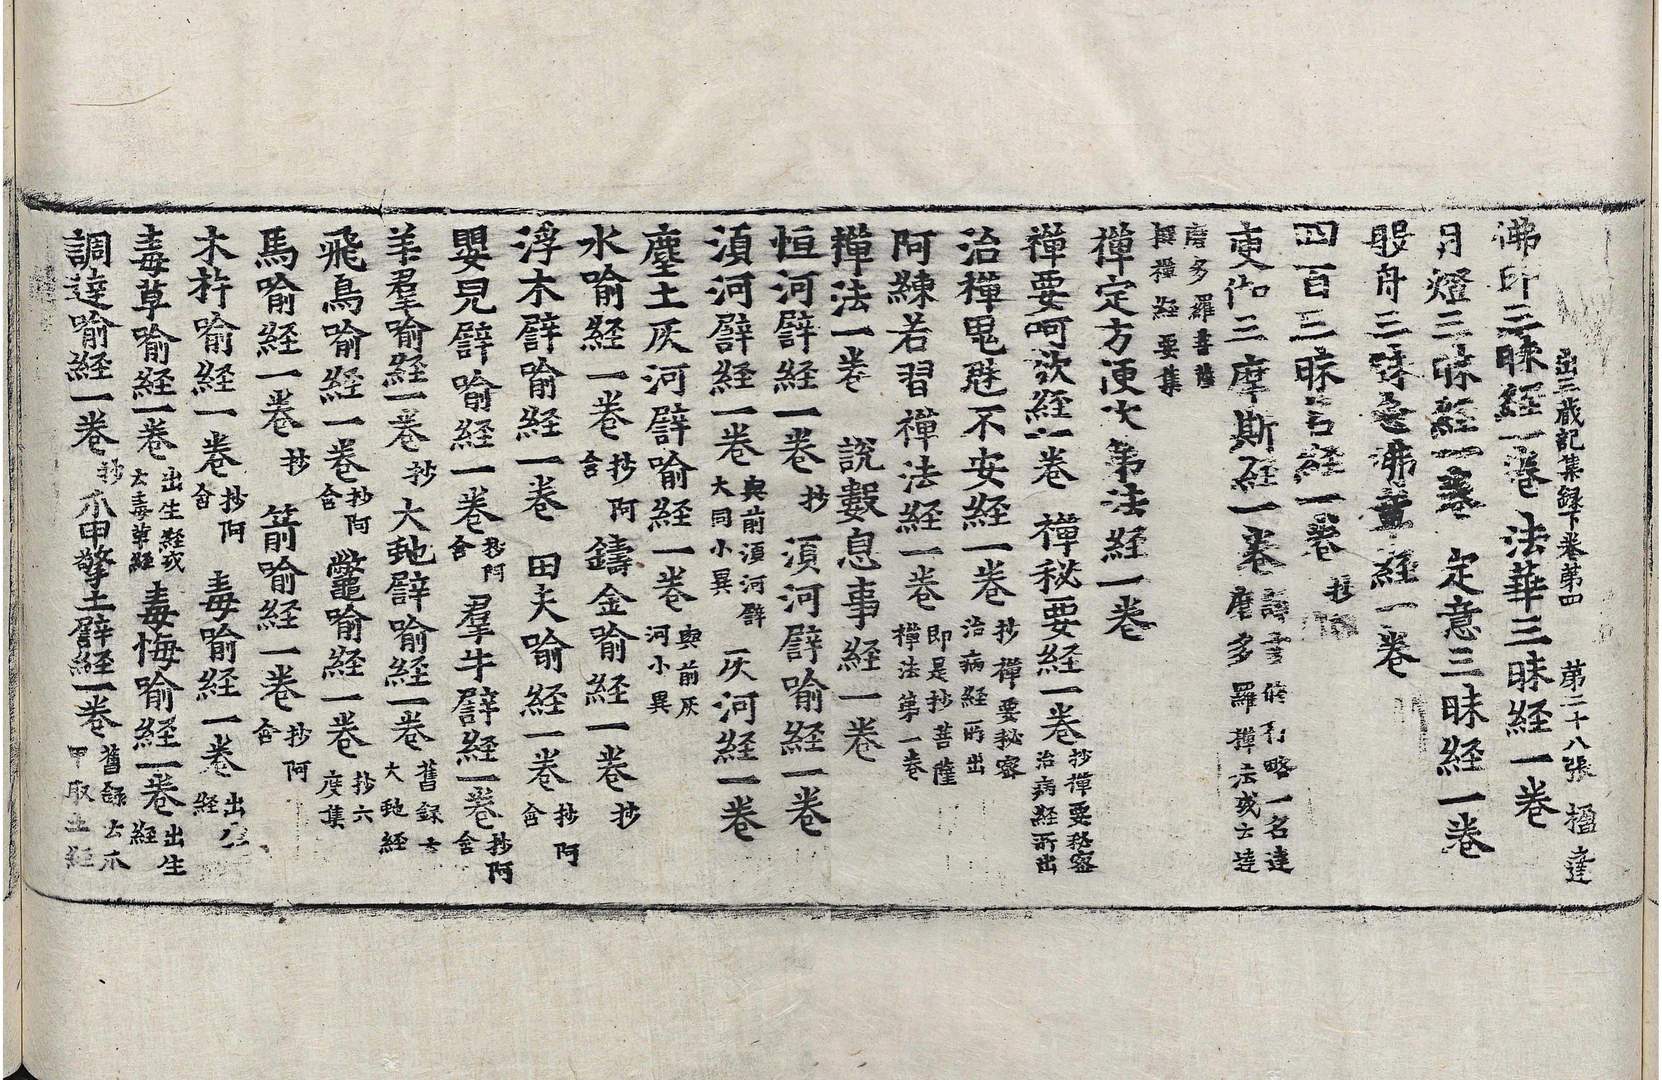 出三藏記集録下卷苐四 苐二十八張 楹達
佛印三昧経一卷 法華三昧経一卷
月燈三昧経一卷 定意三昧経一卷
般舟三昧念佛章経一卷
四百三昧名経一卷 抄
庾伽三摩斯経一卷 譯言脩行略一名達
磨多羅禪法或云達
磨多羅菩薩
撰禪経要集
禪定方便次苐法経一卷
禪要呵欲経一卷 禪秘要経一卷 抄禪要秘密
治病経所出
治禪鬼魅不安経一卷 抄禪要秘密
治病経所出
阿練若習禪法経一卷 即是抄菩薩
禪法苐一卷
禪法一卷 說數息事経一卷
恒河譬経一卷 抄 湏河譬喻経一卷
湏河譬経一卷 與前湏河譬
大同小異 一灰河経一卷
塵土灰河譬喻経一卷 與前灰
河小異
水喻経一卷 抄阿
含 鑄金喻経一卷 抄
浮木譬喻経一卷 田夫喻経一卷 抄阿
含
嬰兒譬喻経一卷 抄阿
含 羣牛譬経一卷 抄阿
含
羊羣喻経一卷 抄 大虵譬喻経一卷 舊録云
大虵経
飛鳥喻経一卷 抄阿
含 鼈喻経一卷 抄六
度集
馬喻経一卷 抄 箭喻経一卷 抄阿
含
木杵喻経一卷 抄阿
含 毒喻経一卷 出生
経
毒草喻経一卷 出生経或
云毒草経 毒悔喻経一卷 出生
経
調達喻経一卷 抄 爪甲擎土譬経一卷 舊録云爪
甲取土経